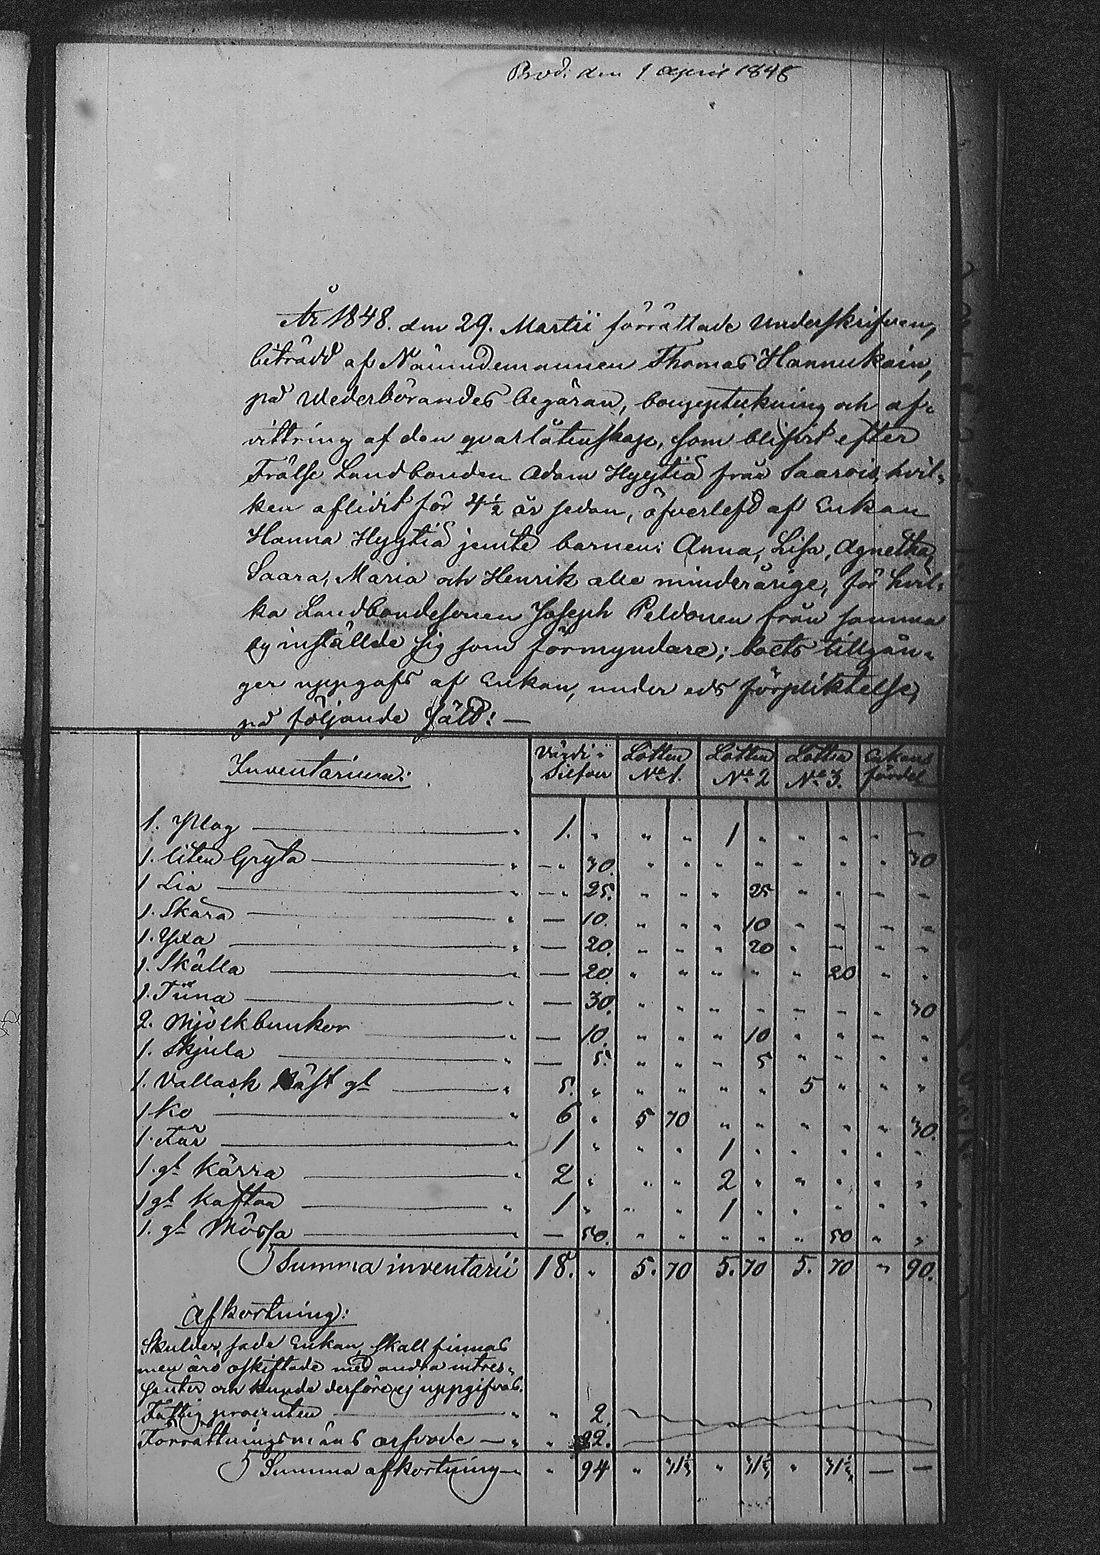 Prod. den 1 april 1848
År 1848. den 29. Martii förrättade Underskrifven,
biträdd af Nämndemannen Thomas Hannukain,
på Wederbörandes begäran, bouppteckning och af-
vittring af den qvarlåtenskap, som blifvit efter
Frälse Landbonden Adam Hyytiä från Saarois, hvil-
ken aflidit för 4½ år sedan, öfverlefd af Enkan
Hanna Hyytiä jemte barnen: Anna, Lisa, Agnetha,
Saara, Maria och Henrik alle minderårige, för hvil-
ka Landbondesonen Joseph Peldonen från samma
by inställde sig som förmyndare; boets tillgån-
gar uppgafs af Enkan, under eds förpliktelse,
på följande sätt: —
Inventarium: Värde i Silfver Lotten No 1. Lotten No 2 Lotten No 3. Enkans fördel
1. Plog — 1. " " " 1 " " " " —
1. liten Gryta — — 30. " " " " " " " 30
1 Lia — — 25. " " " 25 " " " "
1. Skära — — 10. " " " 10 " " " "
1. Yxa — — 20. " " " 20 " — " "
1. Skälla — — 20. " " " " " 20 " "
1. Tiina — — 30. " " " " " " " 30
2. Mjölkbunkor — 10. " " " 10 " " " "
1. Skjula — — 5. " " — 5 " " " "
1. Vallack Häst gl — 5. " " " " " 5 " " "
1 Ko — 6 " 5 70 " " " " " 30.
1. Får — 1 " " " 1 " " " " "
1. gl Kärra — 2 " " " 2 " " " " "
1 gl Kaftan — 1 " " " 1 " " " " "
1. gl Mössa — — 50. " " " " " 50 " "
Summa inventarii 18. " 5. 70 5. 70 5. 70 " 90.
Afkortning:
Skulder, sade Enkan, skall finnas
men äro oskiftade med andra intres-
senter och kunde derföre ej uppgifvas.
Fattig procenten — " " 2.
Förrättningsmäns arfvode — " " 92.
Summa afkortning — " 94 " 31⅓ " 31⅓ " 31⅓ — —